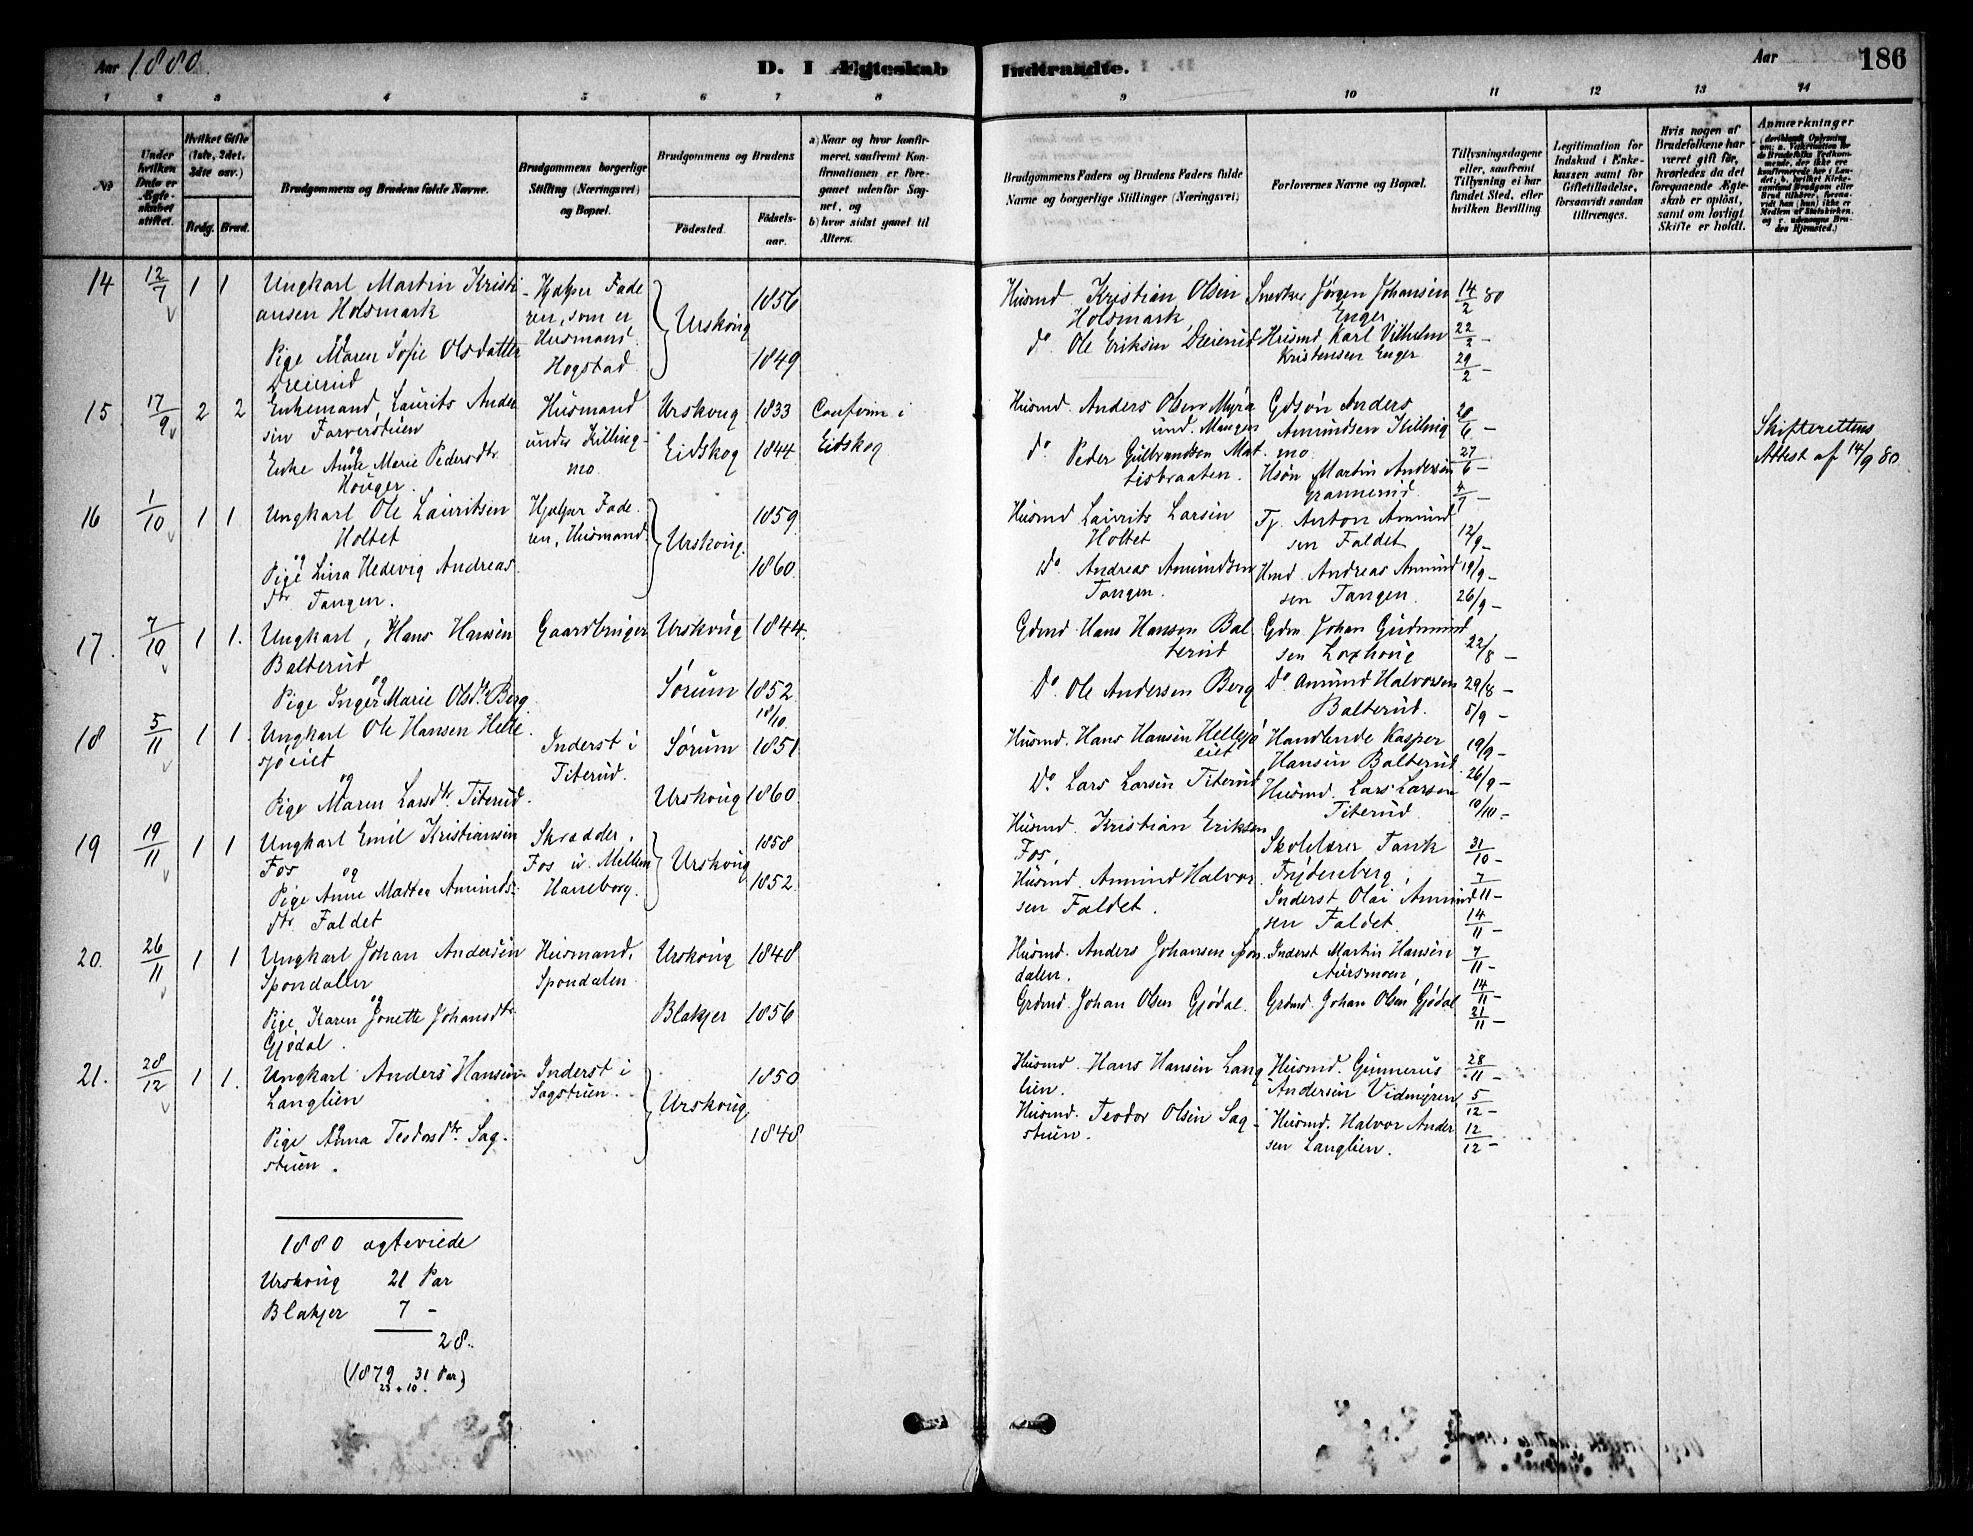 Aar 1880.
D. I Ægteskab
Indtraadte.
Aar
186
1 2 3 4 5 6 7 8
9 10 11 12 13 14
No
Under hvilken Dato er Ægteskabet stiftet.
Hvilket Gifte (1ste, 2det, 3die osv.)
Brdg. Brud.
Brudgommens og Brudens fulde Navne.
Brudgommens borgerlige Stilling (Næringsvei) og Bopæl.
Brudgommens og Brudens
Fødested.
Fødselsaar.
a) Naar og hvor konfirmeret, saafremt Konfirmationen er foreganet udenfor Sognet, og
b) hvor sidst ganet til Alters.
Brudgommens Faders og Brudens Faders fulde Navne og borgerlige Stillinger (Næringsvei)
Forlovernes Navne og Bopæl.
Tillysningsdagene eller, saafremt Tillysning ei har fundet Sted, efter hvilken Bevilling
Legitimation for Indskud i Enkekassen samt for Giftetilladelse, forsaavidt saadan tiltrænges.
Hvis nogen af Brudefolkene har været gift før, hvorledes da det foregaaende Ægteskab er opløst, samt om lovligt Skifte er holdt.
Anmærkninger
14 12/7 1 1
Ungkarl Martin Kristi
ansen Holsmark
og
Pige Maren Sofie Olsdatter
Dreierud
Hjælper Fade
ren, som er
Husmand.
Hogstad
Urskoug
1856
1849
Husmd Kristian Olsen
Holsmark
do Ole Eriksen Dreierud
Snedker Jørgen Johansen
Enger
Husmd Karl Vilhelm
Kristensen Enger
14/2 80
22/2 -
29/2 -
15 17/9 2 2
Enkemand, Laurits Ander
sen Farverstuen
og
Enke Anne Marie Pedersdtr
Houger.
Husmand
under Killing-
mo.
Urskoug 1833
Eidskog 1844
Confirm i
Eidskog
Husmd. Anders Olsen Myra
und. Mangen
do Peder Gulbrandsen Mat
tisbraaten.
Gdsøn Anders
Amundsen Killing
mo.
Hsøn Martin Andersen
20/6 -
27/6 -
4/7 -
Skifterettens
Attest af 14/9 80
16 1/10 1 1.
Ungkarl Ole Lauritsen
Holtet
og
Pige Lina Hedevig Andreas
dtr Tangen.
Hjælper Fade
ren, Husmand.
Urskoug.
1859
1860.
Husmd Laurits Larsen
Holtet
Do Andreas Amundsen
Tangen.
Tj. Anton Amund
sen Faldet
Hmd. Andreas Amund
sen Tangen.
12/9 -
19/9 -
26/9 -
17. 7/10 1 1.
Ungkarl, Hans Hansen
Balterud
og
Pige Inger Marie Olsdtr Berg.
Gaardbruger
Urskoug 1844.
Sørum 1852.
18/10.
Gdmd Hans Hansen Bal
terud
Do. Ole Andersen Berg
Gdm. Johan Gudmund
sen Loxhoug
Do Amund Halvorsen
Balterud.
22/8 -
29/8 -
5/9 -
18 5/11 1 1.
Ungkarl Ole Hansen Helle
sjøeiet
og
Pige Maren Larsdtr. Titerud.
Inderst i
Titerud.
Sørum 1851
Urskoug 1860.
Husmd. Hans Hansen Hellesjø
eiet
Do. Lars Larsen Titerud
Handlende Kasper
Hansen Balterud.
Husmd. Lars Larsen
Titerud.
19/9 -
26/9 -
10/10 -
19 19/11 1 1
Ungkarl Emil Kristiansen
Fos
og
Pige Anne Mathea Amunds-
dtr Faldet
Skrædder.
Fos u. Mellem
Haneborg.
Urskoug
1858
1852.
Husmd. Kristian Eriksen
Fos,
Husmd. Amund Halvor
sen Faldet.
Skolelærer Tank
Frydenberg,
Inderst Olai Amund
sen Faldet.
31/10 -
7/11 -
14/11 -
20. 26/11 1 1
Ungkarl Johan Andersen
Spondalen
og
Pige, Karen Jonette Johansdtr
Gjødal.
Husmand.
Spondalen
Urskoug 1848
Blakjer 1856
Husmd. Anders Johansen Spon
dalen.
Grdmd Johan Olsen Gjødal.
Inderst Martin Hansen
Aursmoen,
Grdmd. Johan Olsen Gjødal
7/11 -
14/11 -
21/11 -
21. 28/12 1 1.
Ungkarl Anders Hansen
Langlien
og
Pige Anna Teodorsdtr. Sag-
stuen.
Inderst i
Sagstuen.
Urskoug
1850
1848
Husmd. Hans Hansen Lang
lien.
Husmd. Teodor Olsen Sag-
stuen.
Husmd. Gunnerus
Andersen Vidmyren.
Husmd. Halvor Ander
sen Langlien.
28/11 -
5/12 -
12/12 -
1880 ægteviede
Urskoug 21 Par
Blakjer 7 -
28.
(1879 31 Par)